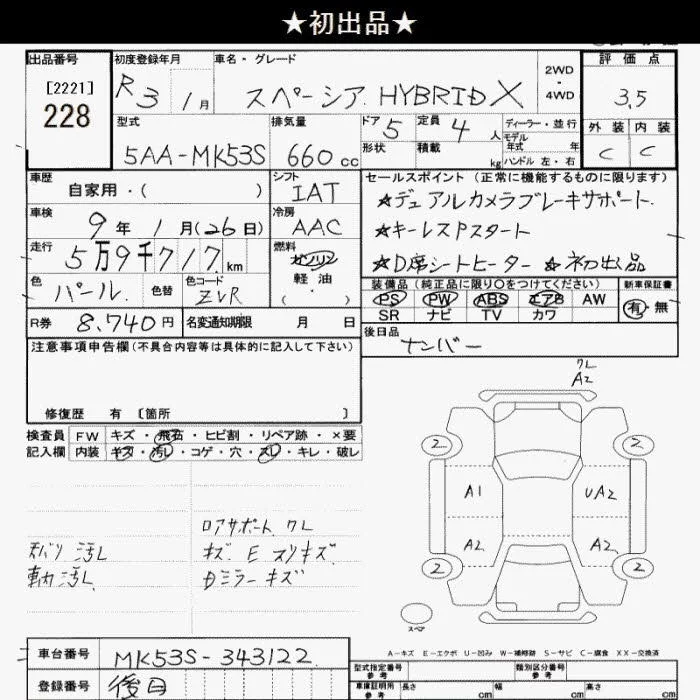 ★初出品★
出品番号
[2221]
228
初度登録年月
R3 1月
車名・グレード
スペーシア HYBRID X
2WD
・
4WD
評価点
3.5
型式
5AA-MK53S
排気量
660 cc
ドア 5
形状
定員 4 人
積載 kg
ディーラー・並行
モデル
年式 年
ハンドル 左・右
外装 内装
C C
車歴
自家用・( )
シフト
IAT
セールスポイント(正常に機能するものに限ります)
★デュアルカメラブレーキサポート
★キーレスPスタート
★D席シートヒーター ★初出品
車検
9年 1月(26日)
冷房
AAC
走行
5万9千717 km
燃料
ガソリン
軽油
( ・ )
色
パール
色替
色コード
ZVR
装備品(純正品に限り○をつけてください)
PS PW ABS エアB AW
SR ナビ TV カワ
新車保証書
有・無
R券 8,740円
名変通知期限 月 日
後日品
ナンバー
注意事項申告欄(不具合内容等は具体的に記入して下さい)
修復歴 有 〔箇所 〕
検査員
記入欄
FW キズ・飛石・ヒビ割・リペア跡・×要
内装 キズ・汚レ・コゲ・穴・スレ・キレ・破レ
ロアサポート クレ
天バリ 汚レ
キズ E スリキズ
車内汚レ
Dミラー キズ
クレ
A2
2 2
A1 UA2
A2 A2
2 2
スペア
A-キズ E-エクボ U-凹み W-補修跡 S-サビ C-腐食 XX-交換済
車台番号 MK53S-343122
登録番号 後日
型式指定番号
参考
類別区分番号
参考
車庫証明用
参考
長さ cm 幅 cm 高さ cm